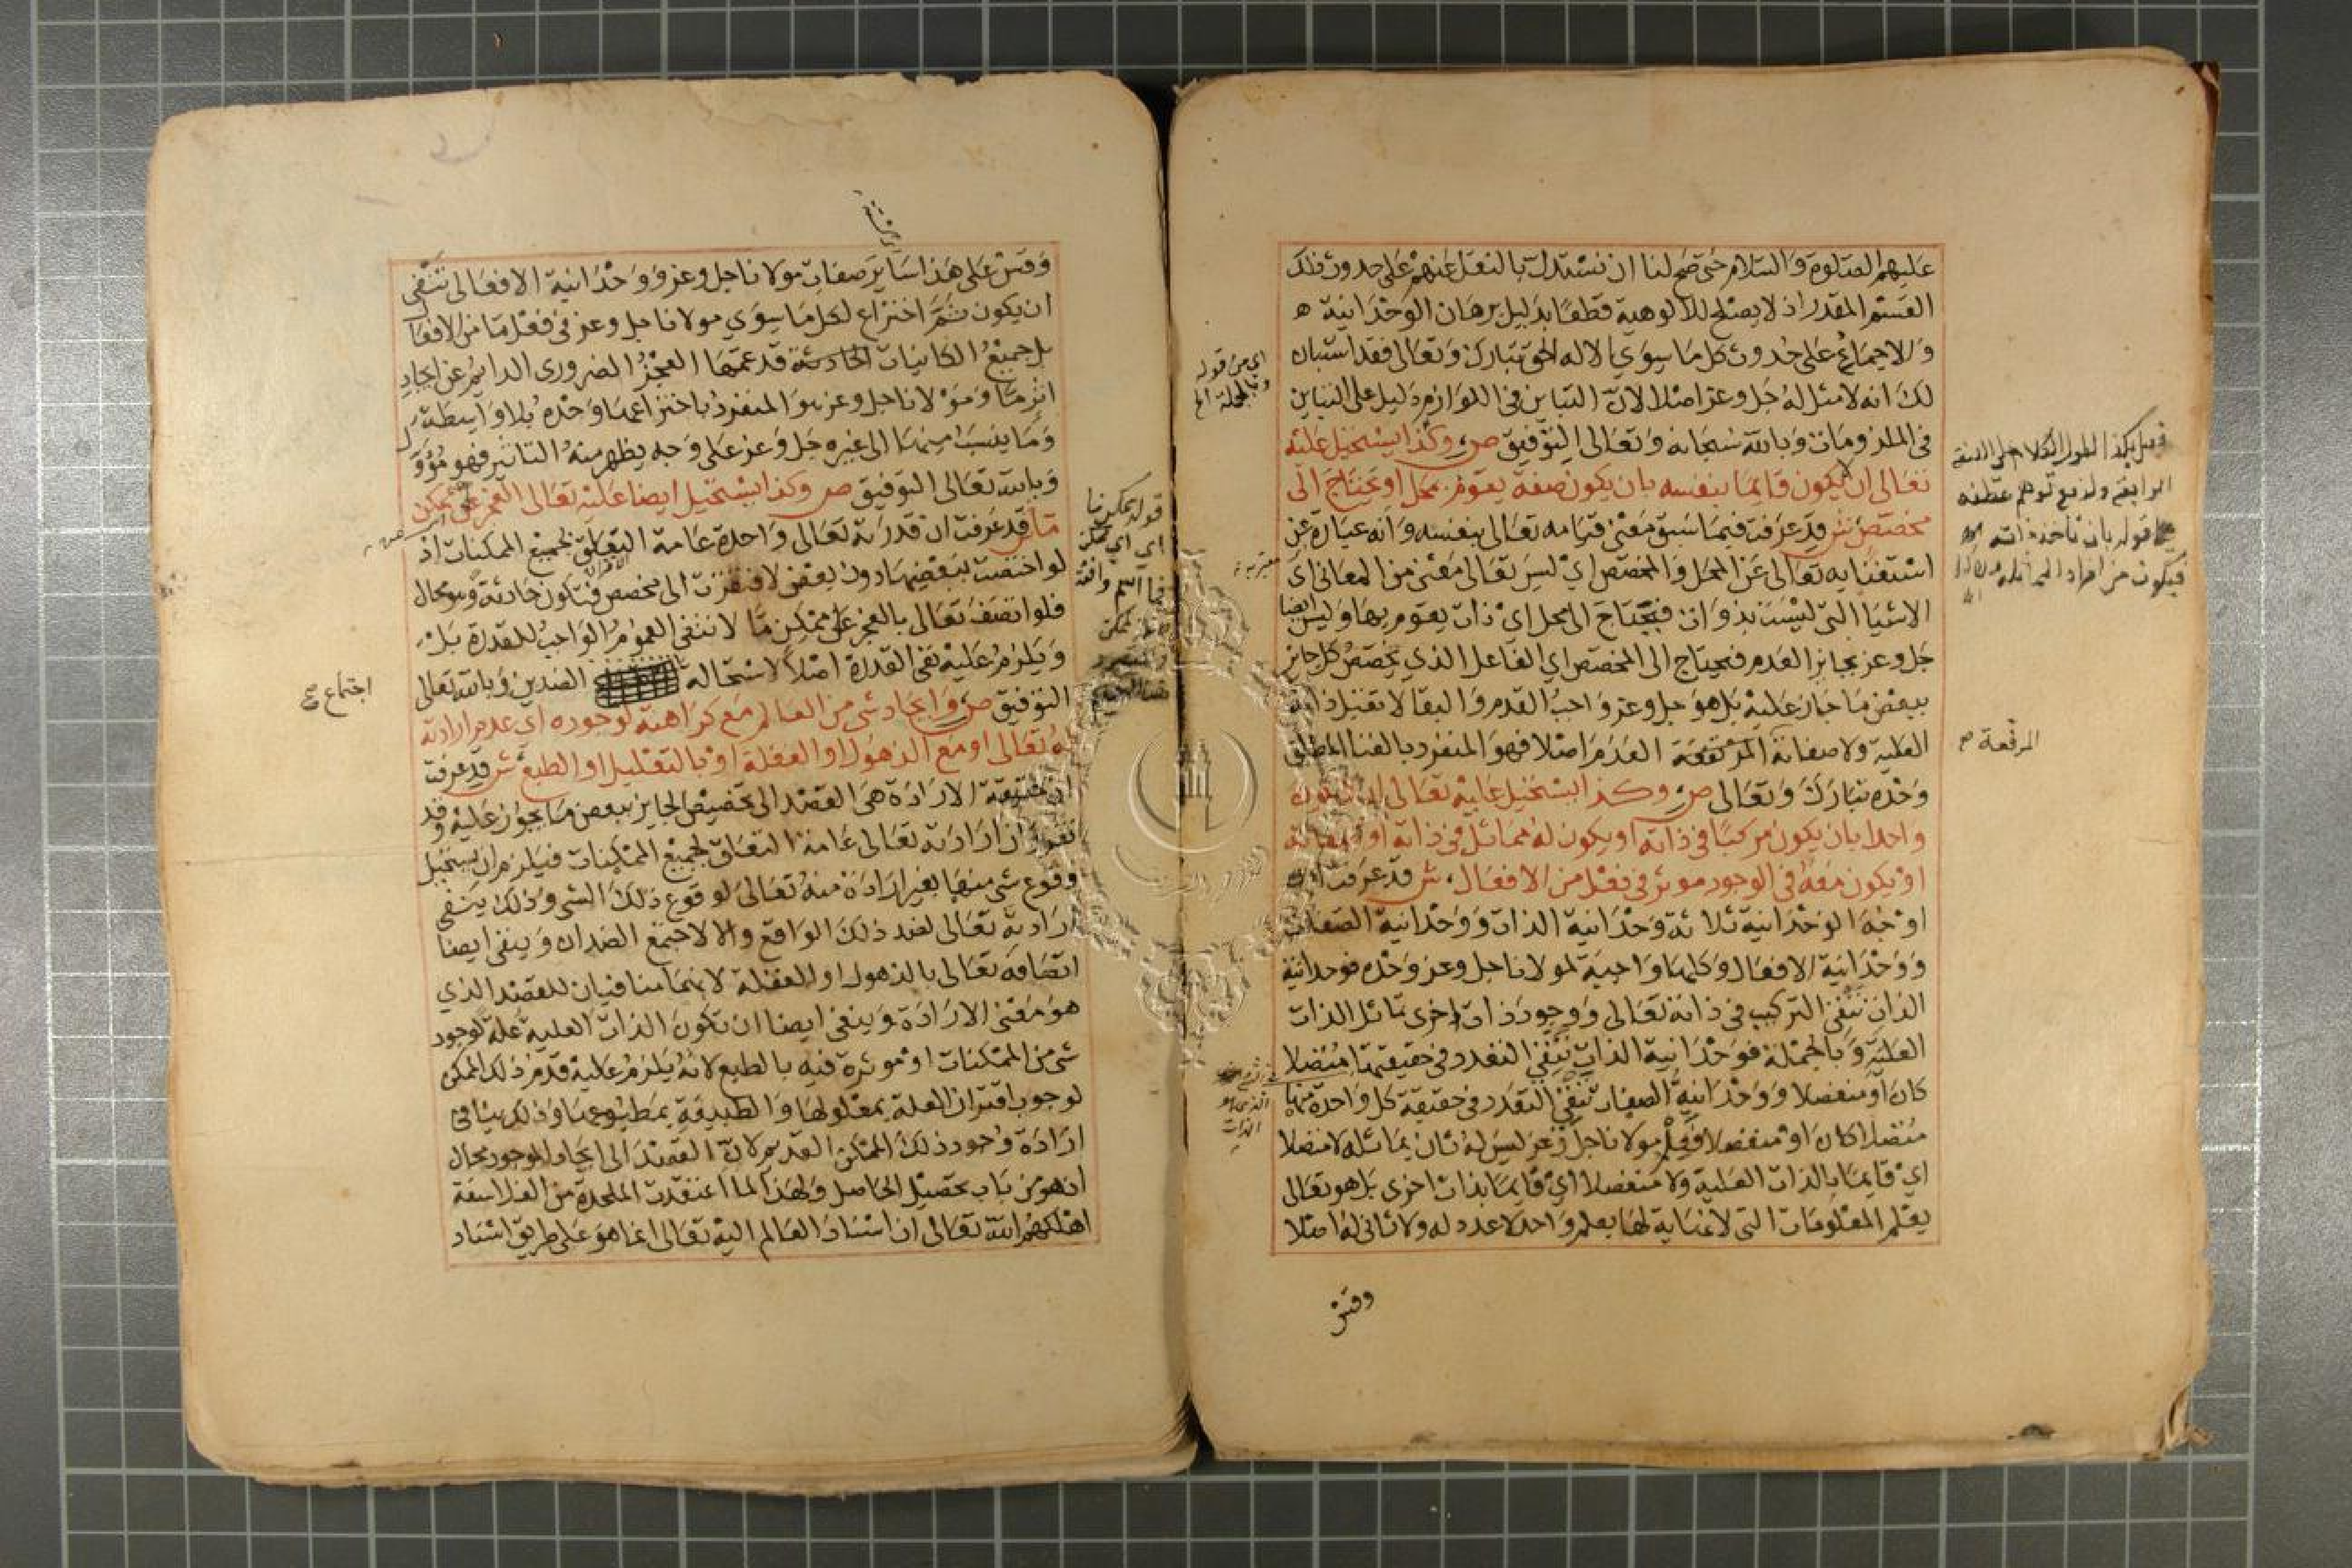 عليهم الصلوة والسلام حتى صح لنا ان نستدل بالنقل عنهم على حدوث ذلك
القسم المقدر اذ لا يصلح للالوهية قطعا بدليل برهان الوحدانية ه
والاجماع على حدوث كل ما سوي الاله الحق تبارك وتعالى فقد استبان
لك انه لا مثل له جل وعز اصلا لان التباين فى اللوازم دليل على التباين
فى الملزومات وبالله سبحانه وتعالى التوفيق ص وكذا يستحيل عليه
تعالى ان لا يكون قايما بنفسه بان يكون صفة يقوم بمحل او يحتاج الى
مخصص ش قد عرفت فيما سبق معنى قيامه تعالى بنفسه وانه عبارة عن
استغنايه تعالى عن المحل والمخصص اي ليس تعالى معنى من المعانى اي
الاشيا التى ليست بذوات فيحتاج الى محل اي ذات يقوم بها وليس ايضا
جل وعز بجايز العدم فيحتاج الى المخصص اي الفاعل الذي يخصص كل جايز
ببعض ما جاز عليه بل هو جل وعز واجب القدم والبقا لا تقبل ذاته
العلية ولا صفاته المرتفعة العدم اصلا فهو المنفرد بالغنا المطلق
وحده تبارك وتعالى ص وكذا يستحيل عليه تعالى ان لا يكون
واحدا بان يكون مركبا فى ذاته او يكون له مماثل فى ذاته او صفاته
او يكون معه فى الوجود موثر فى فعل من الافعال ش قد عرفت ان
اوجه الوحدانية ثلاثة وحدانية الذات ووحدانية الصفات
ووحدانية الافعال وكلها واجبة لمولانا جل وعز وحده فوحدانية
الذات تنفى التركيب فى ذاته تعالى ووجود ذات اخرى تماثل الذات
العلية وبالجملة فوحدانية الذات تنفي التعدد فى حقيقتها متصلا
كان او منفصلا ووحدانية الصفات تنفى التعدد فى حقيقة كل واحدة منها
متصلا كان او منفصلا فعلم مولانا جل وعز ليس له ثان يماثله لا متصلا
اي قايما بالذات العلية ولا منفصلا اي قايما بذات اخرى بل هو تعالى
يعلم المعلومات التى لا نهاية لها بعلم واحد لا عدد له ولا ثانى له اصلا
وقس
اي من قوله
وبالجملة الخ
المرفعة صح
وقس على هذا ساير صفات مولانا جل وعز ووحدانية الافعال تنفى
ان يكون ثم اختراع لكل ما سوي مولانا جل وعز فى فعل ما من الافعال
بل جميع الكاينات الحادثة قد عمها العجز الضرورى الدايم عن ايجاد
اثر ما ومولانا جل وعز هو المنفرد باختراعها وحده بلا واسطة
وما ينسب منها الى غيره جل وعز على وجه يظهر منه التاثير فهو مؤول
وبالله تعالى التوفيق ص وكذا يستحيل ايضا عليه تعالى العجز عن ممكن
ما ش قد عرفت ان قدرته تعالى واحدة عامة التعلق بجميع الممكنات اذ
لو اختصت ببعضها دون بعض لافتقرت الى مخصص فتكون حادثة وهو محال
فلو اتصف تعالى بالعجز عن ممكن ما لانتفى العموم الواجب للقدرة بل
ويلزم عليه نفى القدرة اصلا لاستحالة الضدين وبالله تعالى
التوفيق ص وايجاد شى من العالم مع كراهته لوجوده اي عدم ارادته
له تعالى او مع الذهول او الغفلة او بالتعليل او الطبع ش قد عرفت
ان حقيقة الارادة هى القصد الى تخصيص الجايز ببعض ما يجوز عليه وقد
تقرر ان ارادته تعالى عامة التعلق بجميع الممكنات فيلزم ان يستحيل
وقوع شى منها بغير ارادة منه تعالى لوقوع ذلك الشى وذلك ينفى
ارادته تعالى لضد ذلك الواقع والا لاجتمع الضدان وينفى ايضا
اتصافه تعالى بالذهول او الغفلة لانهما منافيان للقصد الذي
هو معنى الارادة وينفى ايضا ان تكون الذات العلية علة لوجود
شى من الممكنات او موثرة فيه بالطبع لانه يلزم عليه قدم ذلك الممكن
لوجوب اقتران العلة بمعلولها والطبيعة بمطبوعها وذلك ينافى
ارادة وجود ذلك الممكن القديم لان القصد الى ايجاد الموجود محال
اذ هو من باب تحصيل الحاصل ولهذا لما اعتقدت الملحدة من الفلاسفة
اهلكهم الله تعالى ان اسناد العالم اليه تعالى انما هو على طريق اسناد
اجتماع صح